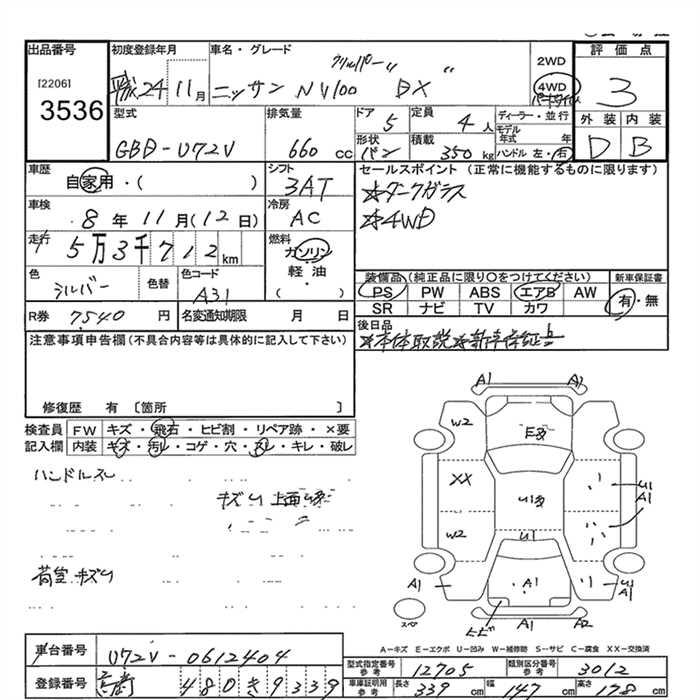 出品番号 初度登録年月 車名・グレード 評価点
[2206] 24 11月 ニッサン NV100 クリッパー DX 2WD 4WD パートタイム 3
3536 型式 排気量 ドア 定員 ディーラー・並行 外装 内装
GBD-U72V 660cc 5 4人 モデル年式 年 D B
形状 バン 積載 350kg ハンドル 左・右
車歴 自家用・( ) シフト 3AT セールスポイント(正常に機能するものに限ります)
☆ダークガラス
車検 8年11月(12日) 冷房 AC ☆4WD
走行 5万3千712km 燃料 ガソリン 軽油 ( )
色 シルバー 色替 色コード A31
装備品(純正品に限り○をつけてください) 新車保証書
PS PW ABS エアB AW 有・無
SR ナビ TV カワ
R券 7540円 名変通知期限 月 日 後日品
☆本体取説☆新車保証書
注意事項申告欄(不具合内容等は具体的に記入して下さい)
修復歴 有〔箇所 〕
検査員 FW キズ・飛石・ヒビ割・リペア跡・×要
記入欄 内装 キズ・汚レ・コゲ・穴・スレ・キレ・破レ
ハンドルスレ
キズU 上面
荷室キズU
A1 A2
W2 E
XX U1 U1 A1
W2 U1
A1 A1 U1 A1
スペア ヒビ A1 A2
A-キズ E-エクボ U-凹み W-補修跡 S-サビ C-腐食 XX-交換済
車台番号 U72V-0612404
登録番号 480き9339
型式指定番号 参考 12705 類別区分番号 参考 3012
車庫証明用 参考 長さ 339cm 幅 147cm 高さ 178cm